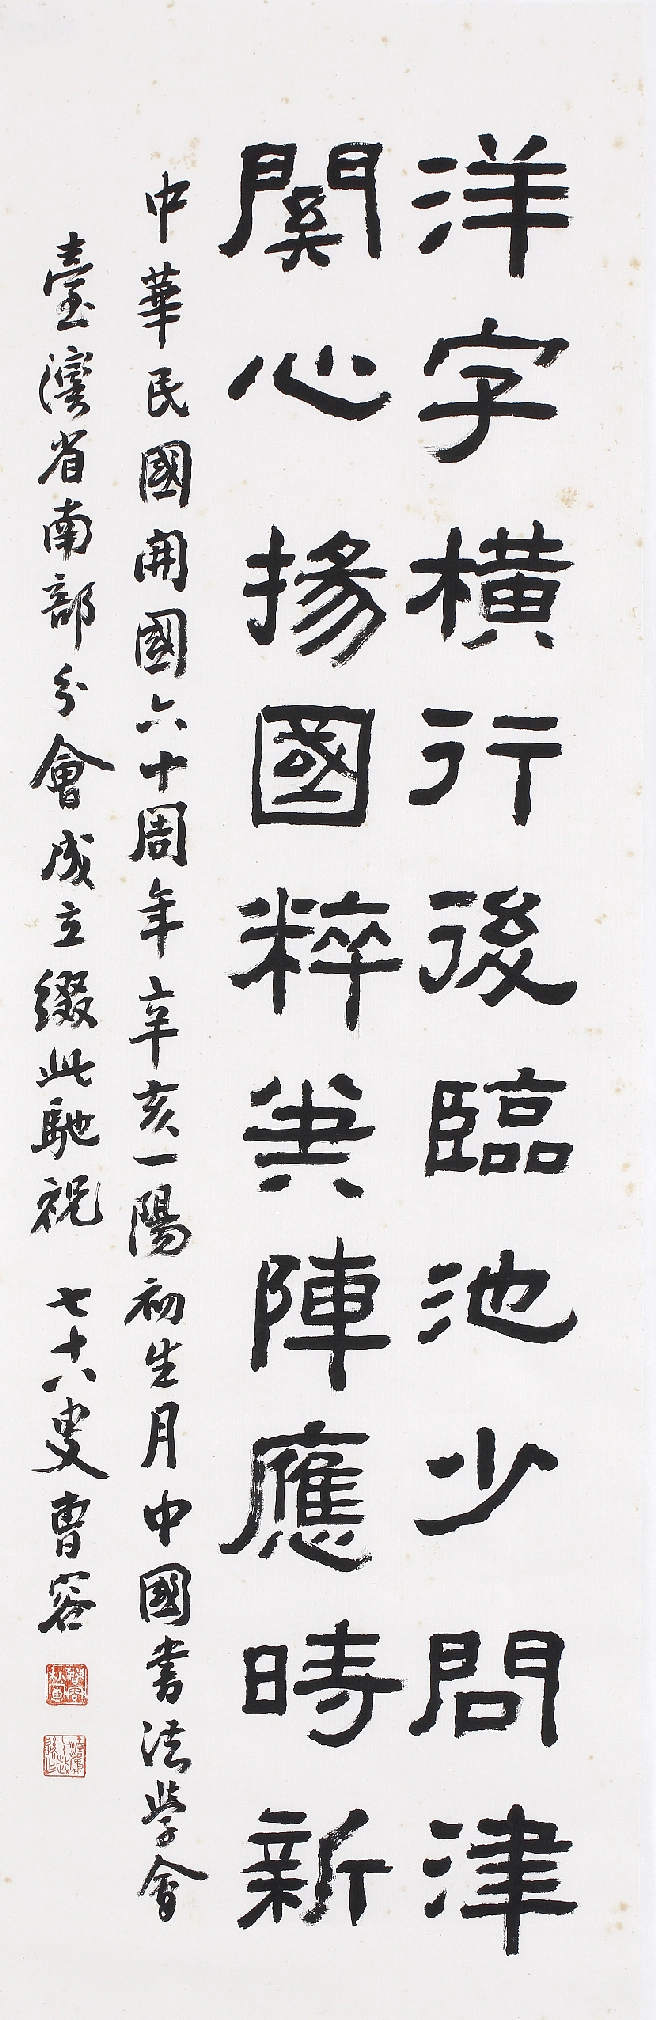 洋字橫行後臨池少問津
關心揚國粹筆陣應時新
中華民國開國六十周年辛亥一陽初生月中國書法學會
臺灣省南部分會成立綴此馳祝 七十八叟曹容